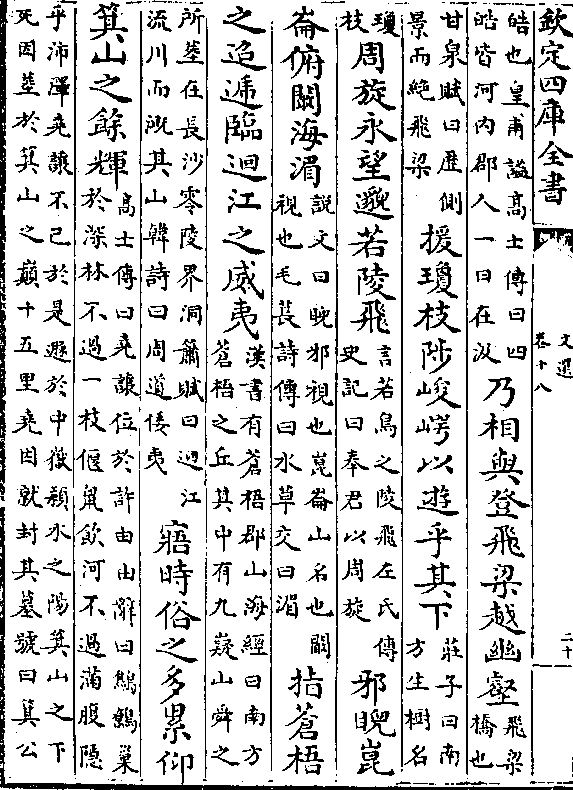 欽定四庫全書
文選
卷十八
二十
皓也皇甫謐高士傳曰四
皓皆河内郡人一曰在汲
乃相與登飛梁越幽壑
飛梁
橋也
甘泉賦曰歷側
景而絶飛梁
援瓊枝陟峻崿以遊乎其下
莊子曰南
方生樹名
瓊
枝
周旋永望邈若陵飛
言若鳥之陵飛左氏傳
史記曰奉君以周旋
邪睨崑
崙俯闞海湄
說文曰睨邪視也崑崙山名也闞
視也毛萇詩傳曰水草交曰湄
指蒼梧
之迢遞臨迴江之威夷
漢書有蒼梧郡山海經曰南方
蒼梧之丘其中有九嶷山舜之
所葬在長沙零陵界洞簫賦曰迴江
流川而溉其山韓詩曰周道倭夷
寤時俗之多累仰
箕山之餘輝
高士傳曰堯讓位於許由由辭曰鷦鷯巢
於深林不過一枝偃鼠飲河不過滿腹隱
乎沛澤堯讓不已於是遯於中嶽潁水之陽箕山之下
死因葬於箕山之巔十五里堯因就封其墓號曰箕公